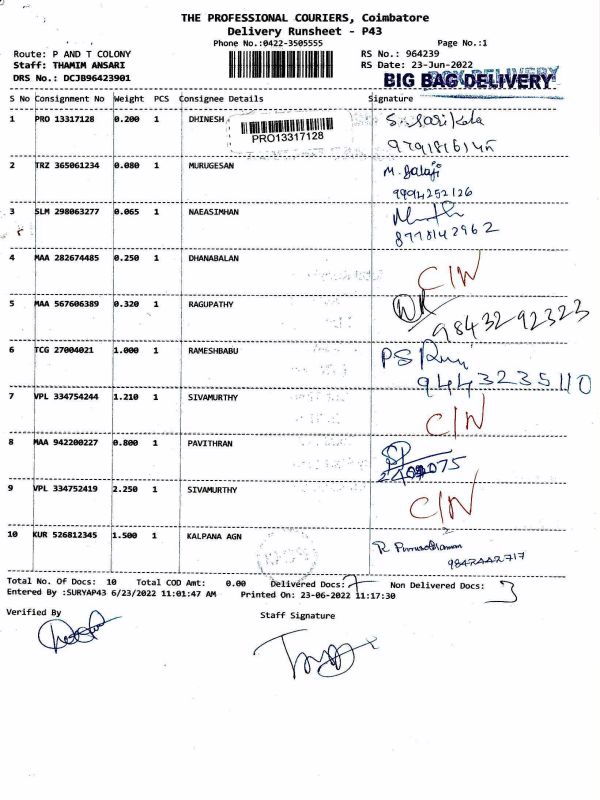 THE PROFESSIONAL COURIERS, Coimbatore
Delivery Runsheet - P43
Phone No.:0422-3505555 Page No.:1
Route: P AND T COLONY RS No.: 964239
Staff: THAMIM ANSARI RS Date: 23-Jun-2022
DRS No.: DCJB96423901 BIG BAG DELIVERY
S No Consignment No Weight PCS Consignee Details Signature
1 PRO 13317128 0.200 1 DHINESH
PRO13317128
2 TRZ 365061234 0.080 1 MURUGESAN M. Balaji
9994252126
3 SLM 298063277 0.065 1 NAEASIMHAN
8778142962
4 MAA 282674485 0.250 1 DHANABALAN C/N
5 MAA 567606389 0.320 1 RAGUPATHY
98432 92323
6 TCG 27004021 1.000 1 RAMESHBABU PS
9443235110
7 VPL 334754244 1.210 1 SIVAMURTHY C/N
8 MAA 942200227 0.800 1 PAVITHRAN
9 VPL 334752419 2.250 1 SIVAMURTHY C/N
10 KUR 526812345 1.500 1 KALPANA AGN
Total No. Of Docs: 10 Total COD Amt: 0.00 Delivered Docs: 7 Non Delivered Docs: 3
Entered By :SURYAP43 6/23/2022 11:01:47 AM Printed On: 23-06-2022 11:17:30
Verified By Staff Signature